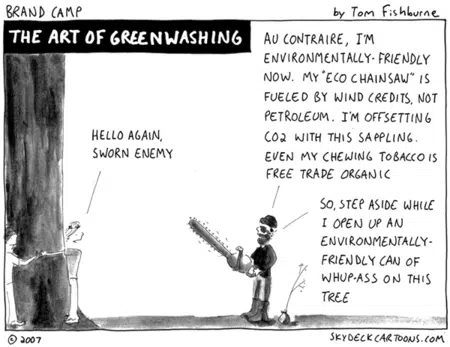 BRAND CAMP
by Tom Fishburne
THE ART OF GREENWASHING
HELLO AGAIN,
SWORN ENEMY
AU CONTRAIRE, I'M
ENVIRONMENTALLY-FRIENDLY
NOW. MY "ECO CHAINSAW" IS
FUELED BY WIND CREDITS, NOT
PETROLEUM. I'M OFFSETTING
CO2 WITH THIS SAPPLING.
EVEN MY CHEWING TOBACCO IS
FREE TRADE ORGANIC
SO, STEP ASIDE WHILE
I OPEN UP AN
ENVIRONMENTALLY-
FRIENDLY CAN OF
WHUP-ASS ON THIS
TREE
© 2007
SKYDECKCARTOONS.COM